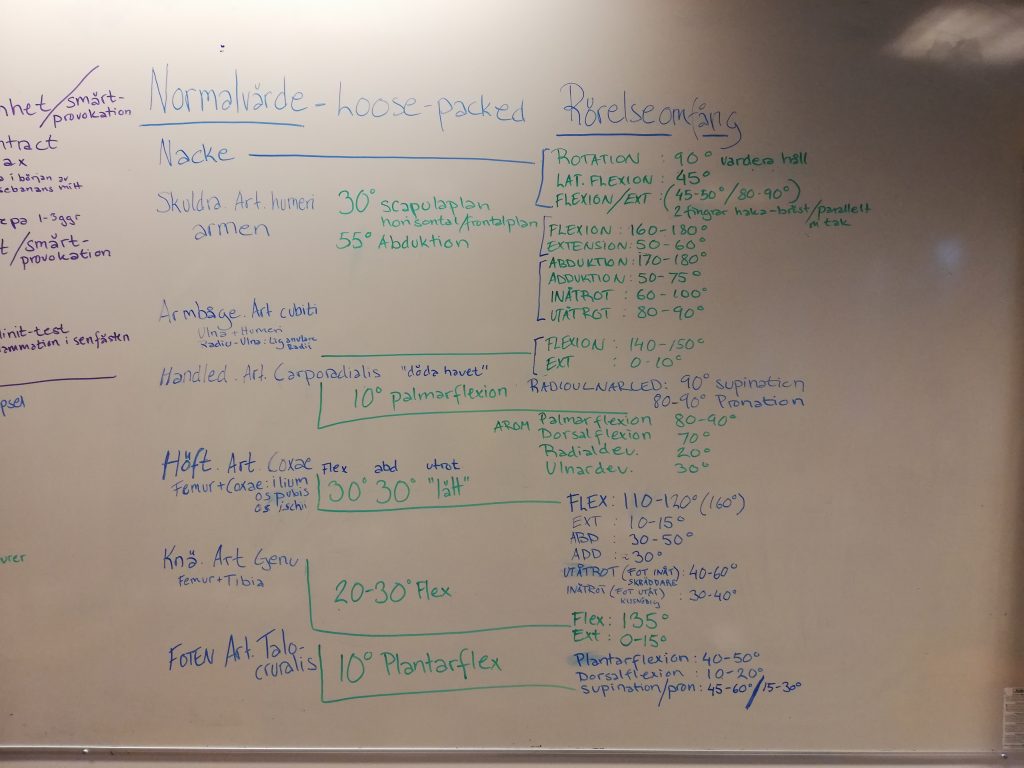 nhet/smärt-
provokation
ntract
ax
a i början av
sebanans mitt
epa 1-3ggr
t/smärt-
provokation
init-test
ammation i senfästen
psel
urer
Normalvärde - Loose-packed Rörelseomfång
Nacke
ROTATION : 90° vardera håll
LAT. FLEXION : 45°
FLEXION/EXT : (45-50°/80-90°)
2 fingrar haka-bröst/parallelt
m tak
Skuldra. Art. humeri
armen
30° scapulaplan
horisontal/frontalplan
55° Abduktion
FLEXION : 160-180°
EXTENSION : 50-60°
ABDUKTION : 170-180°
ADDUKTION : 50-75°
INÅTROT : 60-100°
UTÅTROT : 80-90°
Armbåge. Art cubiti
Ulna + Humeri
Radio-Ulna: Lig anulare
Radii
FLEXION : 140-150°
EXT : 0-10°
Handled. Art. Carporadialis "döda havet"
10° palmarflexion
RADIOULNARLED: 90° supination
80-90° Pronation
AROM Palmarflexion 80-90°
Dorsalflexion 70°
Radialdev. 20°
Ulnardev. 30°
Höft. Art. Coxae
Femur+Coxae: ilium
os pubis
os ischii
Flex abd utrot
30° 30° "lätt"
FLEX: 110-120° (160°)
EXT : 10-15°
ABD : 30-50°
ADD : 30°
UTÅTROT (FOT INÅT) : 40-60°
SKRÄDDARE
INÅTROT (FOT UTÅT) : 30-40°
Knä. Art Genu
Femur+Tibia
20-30° Flex
Flex: 135°
Ext: 0-15°
FOTEN Art. Talo-
cruralis
10° Plantarflex
Plantarflexion : 40-50°
Dorsalflexion : 10-20°
supination/pron : 45-60°/15-30°